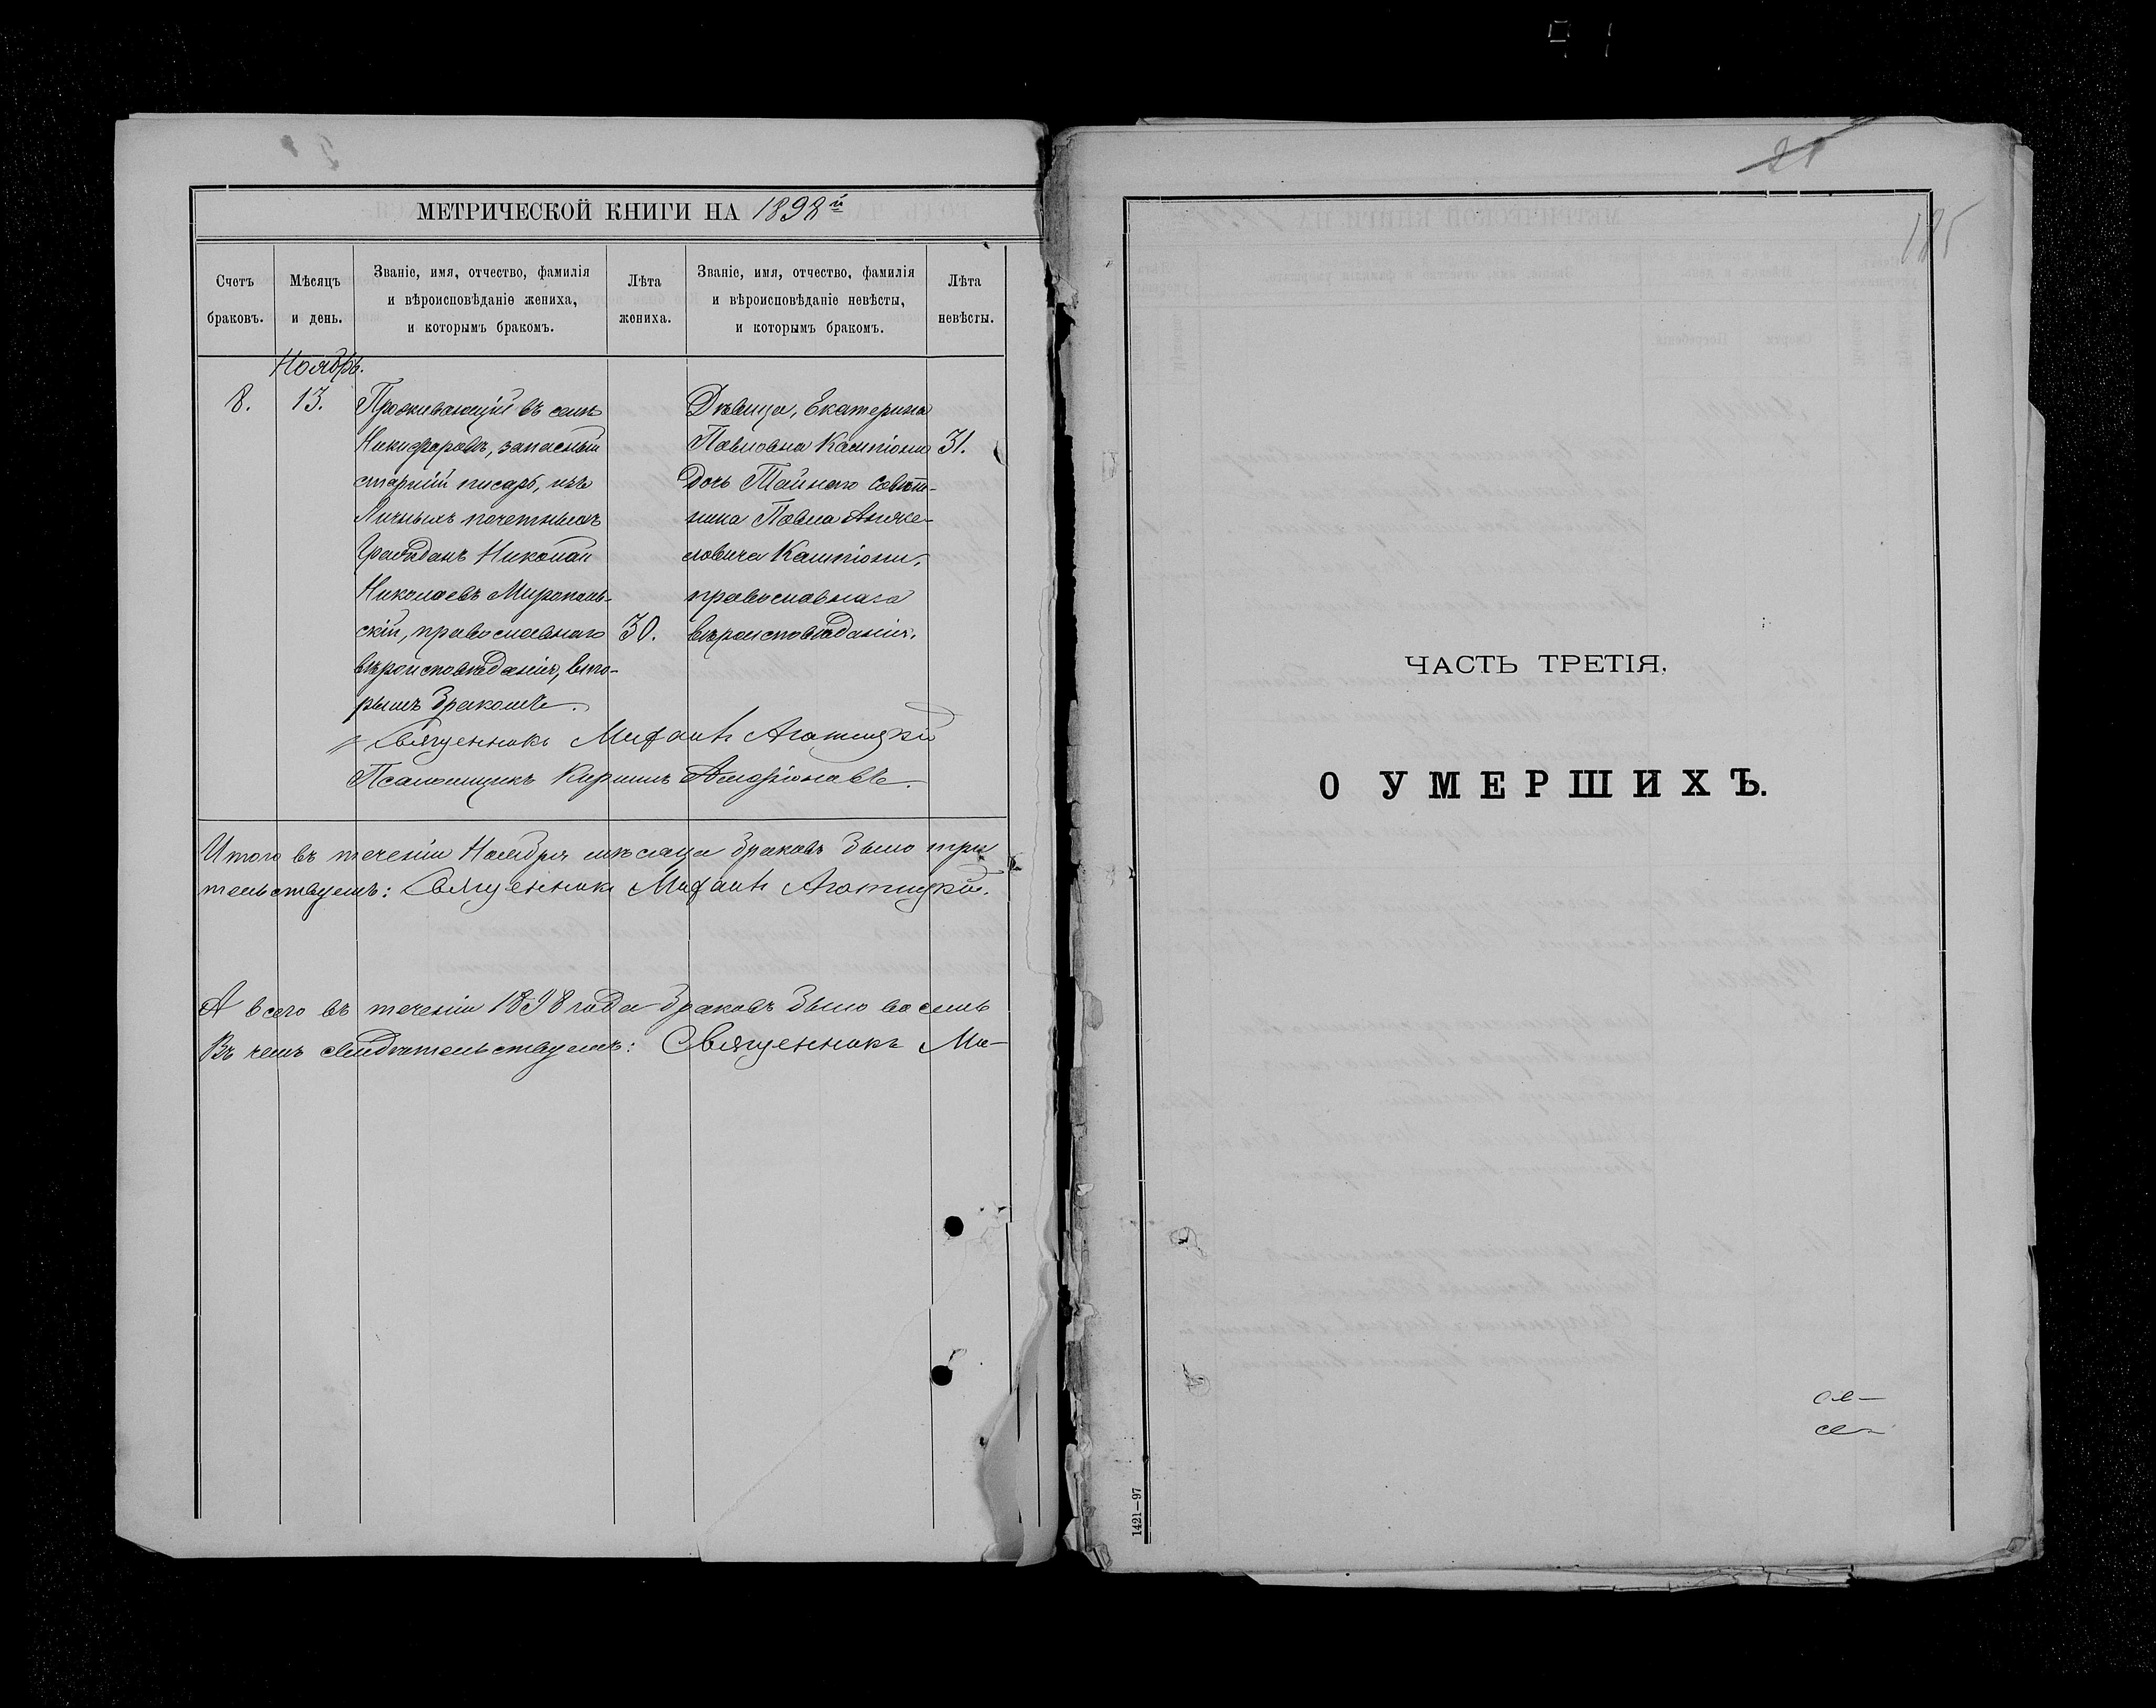 МЕТРИЧЕСКОЙ КНИГИ НА 1898й
Счетъ браковъ.
Мѣсяцъ и день.
Званіе, имя, отчество, фамилія
и вѣроисповѣданіе жениха,
и которымъ бракомъ.
Лѣта жениха.
Званіе, имя, отчество, фамилія
и вѣроисповѣданіе невѣсты,
и которымъ бракомъ.
Лѣта невѣсты.
Ноябрь.
8.
13.
Проживающій въ селѣ
Никифоровѣ, запасный
старшій писарь, изъ
Личныхъ почетныхъ
Гражданъ Николай
Николаевъ Мирополь-
скій, православнаго
вѣроисповѣданія, вто-
рымъ бракомъ.
30.
Дѣвица, Екатерина
Павловна Кампіони
Дочь Тайнаго Совѣт-
ника Павла Анже-
ловича Кампіони,
православнаго
вѣроисповѣданія.
31.
Священникъ
Псаломщикъ Кириллъ
Итого въ теченіи Ноября мѣсяца браковъ было три
тельствуемъ: Священникъ
А всего въ теченіи 1898 года браковъ было восемь
Въ чемъ свидѣтельствуемъ: Священникъ Ми-
21
185
ЧАСТЬ ТРЕТІЯ.
О УМЕРШИХЪ.
1421—97